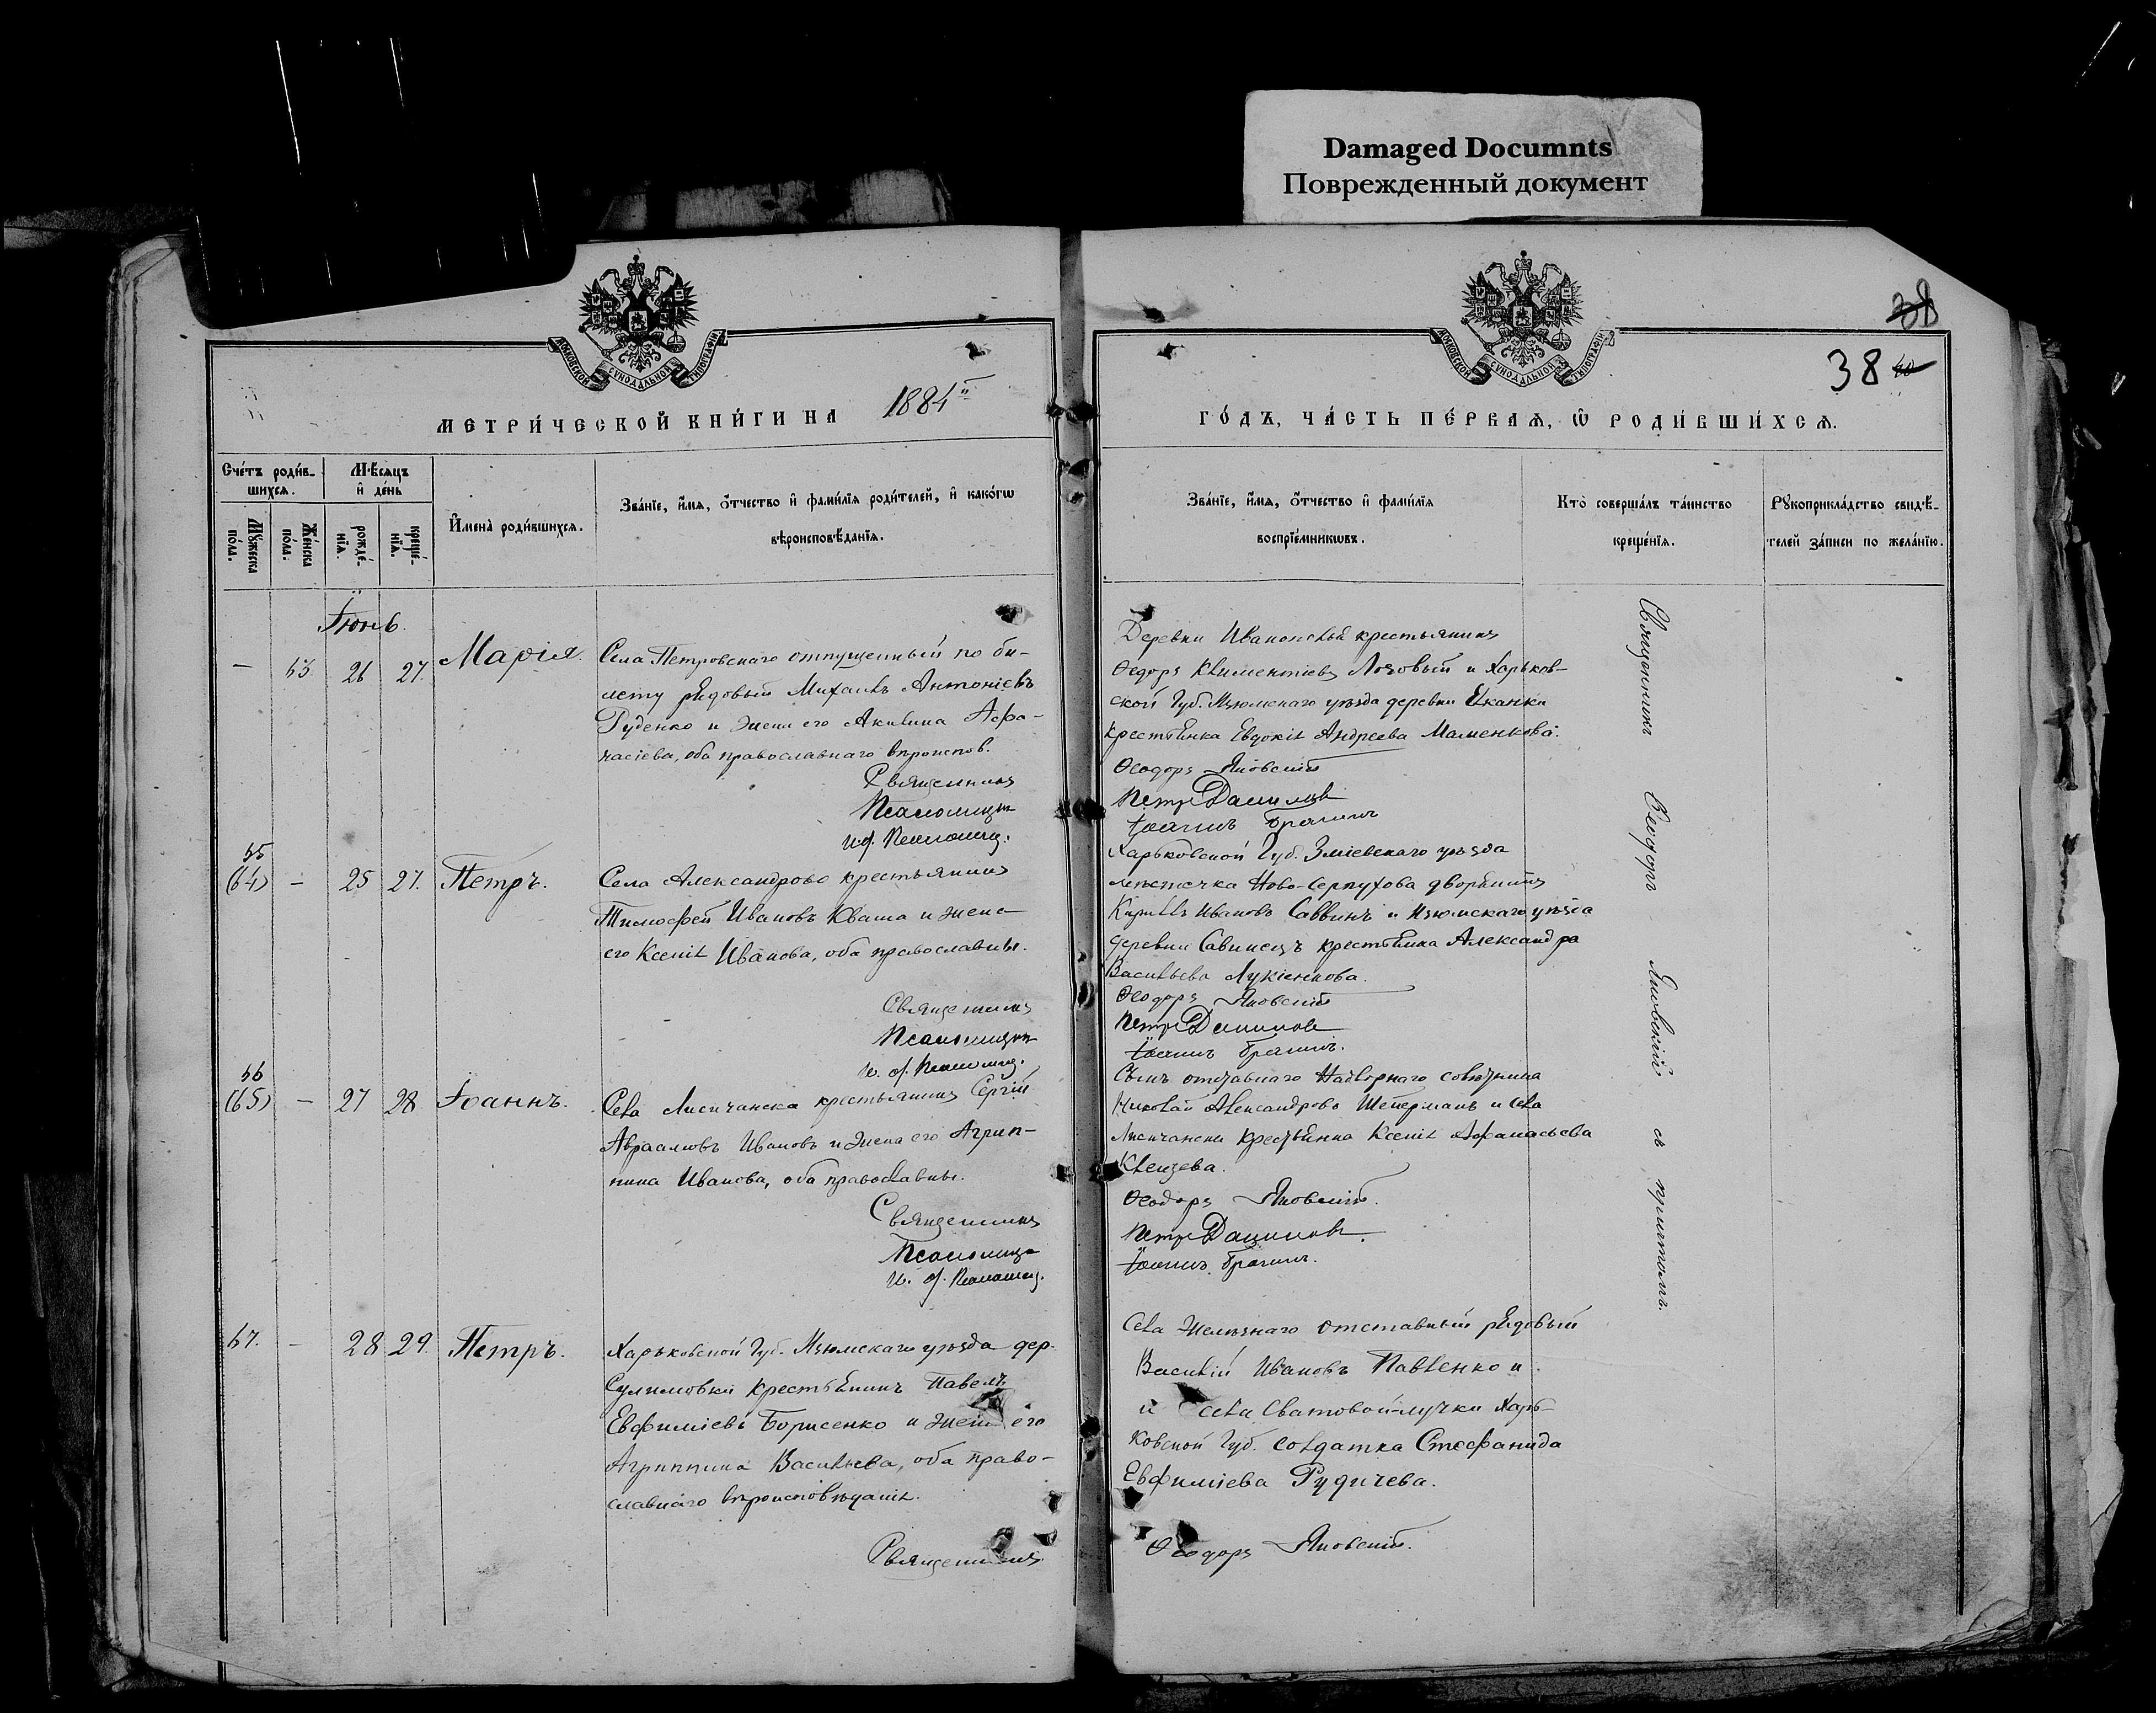 Damaged Documnts
Поврежденный документ
38
МОСКОВСКОЙ СѴНОДАЛЬНОЙ ТИПОГРАФІИ
МОСКОВСКОЙ СѴНОДАЛЬНОЙ ТИПОГРАФІИ
38
МЕТРИ́ЧЕСКОЙ КНИ́ГИ НА 1884
ГО́ДЪ, ЧА́СТЬ ПЕ́РВАѦ, Ѡ҆ РОДИ́ВШИ́ХСѦ.
Сче́тъ роди́в-
шихсѧ.
Мꙋ́жеска по́ла.
Же́нска по́ла.
Мѣ́сѧцъ
и҆ де́нь
рожде́-нїѧ.
креще́-нїѧ.
И҆мена̀ роди́вшихсѧ.
Зва́нїе, и҆́мѧ, ѻ҆́тчество и҆ фами́лїѧ роди́телей, и҆ како́гѡ
вѣроисповѣ́данїѧ.
Зва́нїе, и҆́мѧ, ѻ҆́тчество и҆ фами́лїѧ
воспрїе́мникѡвъ.
Кто̀ соверша́лъ та́инство
креще́нїѧ.
Рꙋкоприкла́дство свидѣ́-
телей за́писи по жела́нїю.
Іюнь.
— 63. 26 27. Марія.
Села Петровскаго отпущенный по би-
лету рядовый Михаилъ Антоніевъ
Руденко и жена его Акилина Афа-
насіева, оба православнаго вѣроиспов.
Священникъ
Псаломщикъ
И. д. Псаломщ.
Деревни Ивановской крестьянинъ
Ѳедоръ Климентіевъ Лозовый и Харьков-
ской Губ. Изюмскаго уѣзда деревни
крестьянка Евдокія Андреева Маменкова.
Ѳеодоръ Яновскій
Петръ Данилов
Іоаннъ Брагинъ
55
(64) — 25 27. Петръ.
Села Александрово крестьянинъ
Тимофей Ивановъ Юваша и жена
его Ксенія Иванова, оба православны.
Священникъ
Псаломщикъ
И. д. Псаломщ.
Харьковской Губ. Зміевскаго уѣзда
мѣстечка Ново-Серпухова дворянинъ
Кириллъ Ивановъ Саввинъ и Изюмскаго уѣзда
деревни Савинецъ крестьянка Александра
Васильева Лукіенкова.
Ѳеодоръ Яновскій
Петръ Данилов
Іоаннъ Брагинъ.
56
(65) — 27 28 Іоаннъ.
Села Лисичанска крестьянинъ Сергій
Авраамовъ Ивановъ и жена его Агрип-
пина Иванова, оба православны.
Священникъ
Псаломщикъ
И. д. Псаломщ.
Сынъ отставнаго Надворнаго совѣтника
Николай Александровъ Шейерманъ и села
Лисичанска крестьянка Ксенія Афанасьева
Ѳеодоръ Яновскій.
Петръ Данилов
Іоаннъ Брагинъ.
57. — 28 29. Петръ.
Харьковской Губ. Изюмскаго уѣзда дер.
Сулимовки крестьянинъ Павелъ
Евфиміевъ Борисенко и жена его
Агриппина Васильева, оба право-
славнаго вѣроисповѣданія.
Священникъ
Села Желѣзнаго отставный рядовый
Василій Ивановъ Павленко и
и села Сватовой-лучки Харь-
ковской Губ. солдатка Стефанида
Евфиміева Рудичева.
Ѳеодоръ Яновскій.
Священникъ Ѳеодоръ Яновскій съ причтомъ.